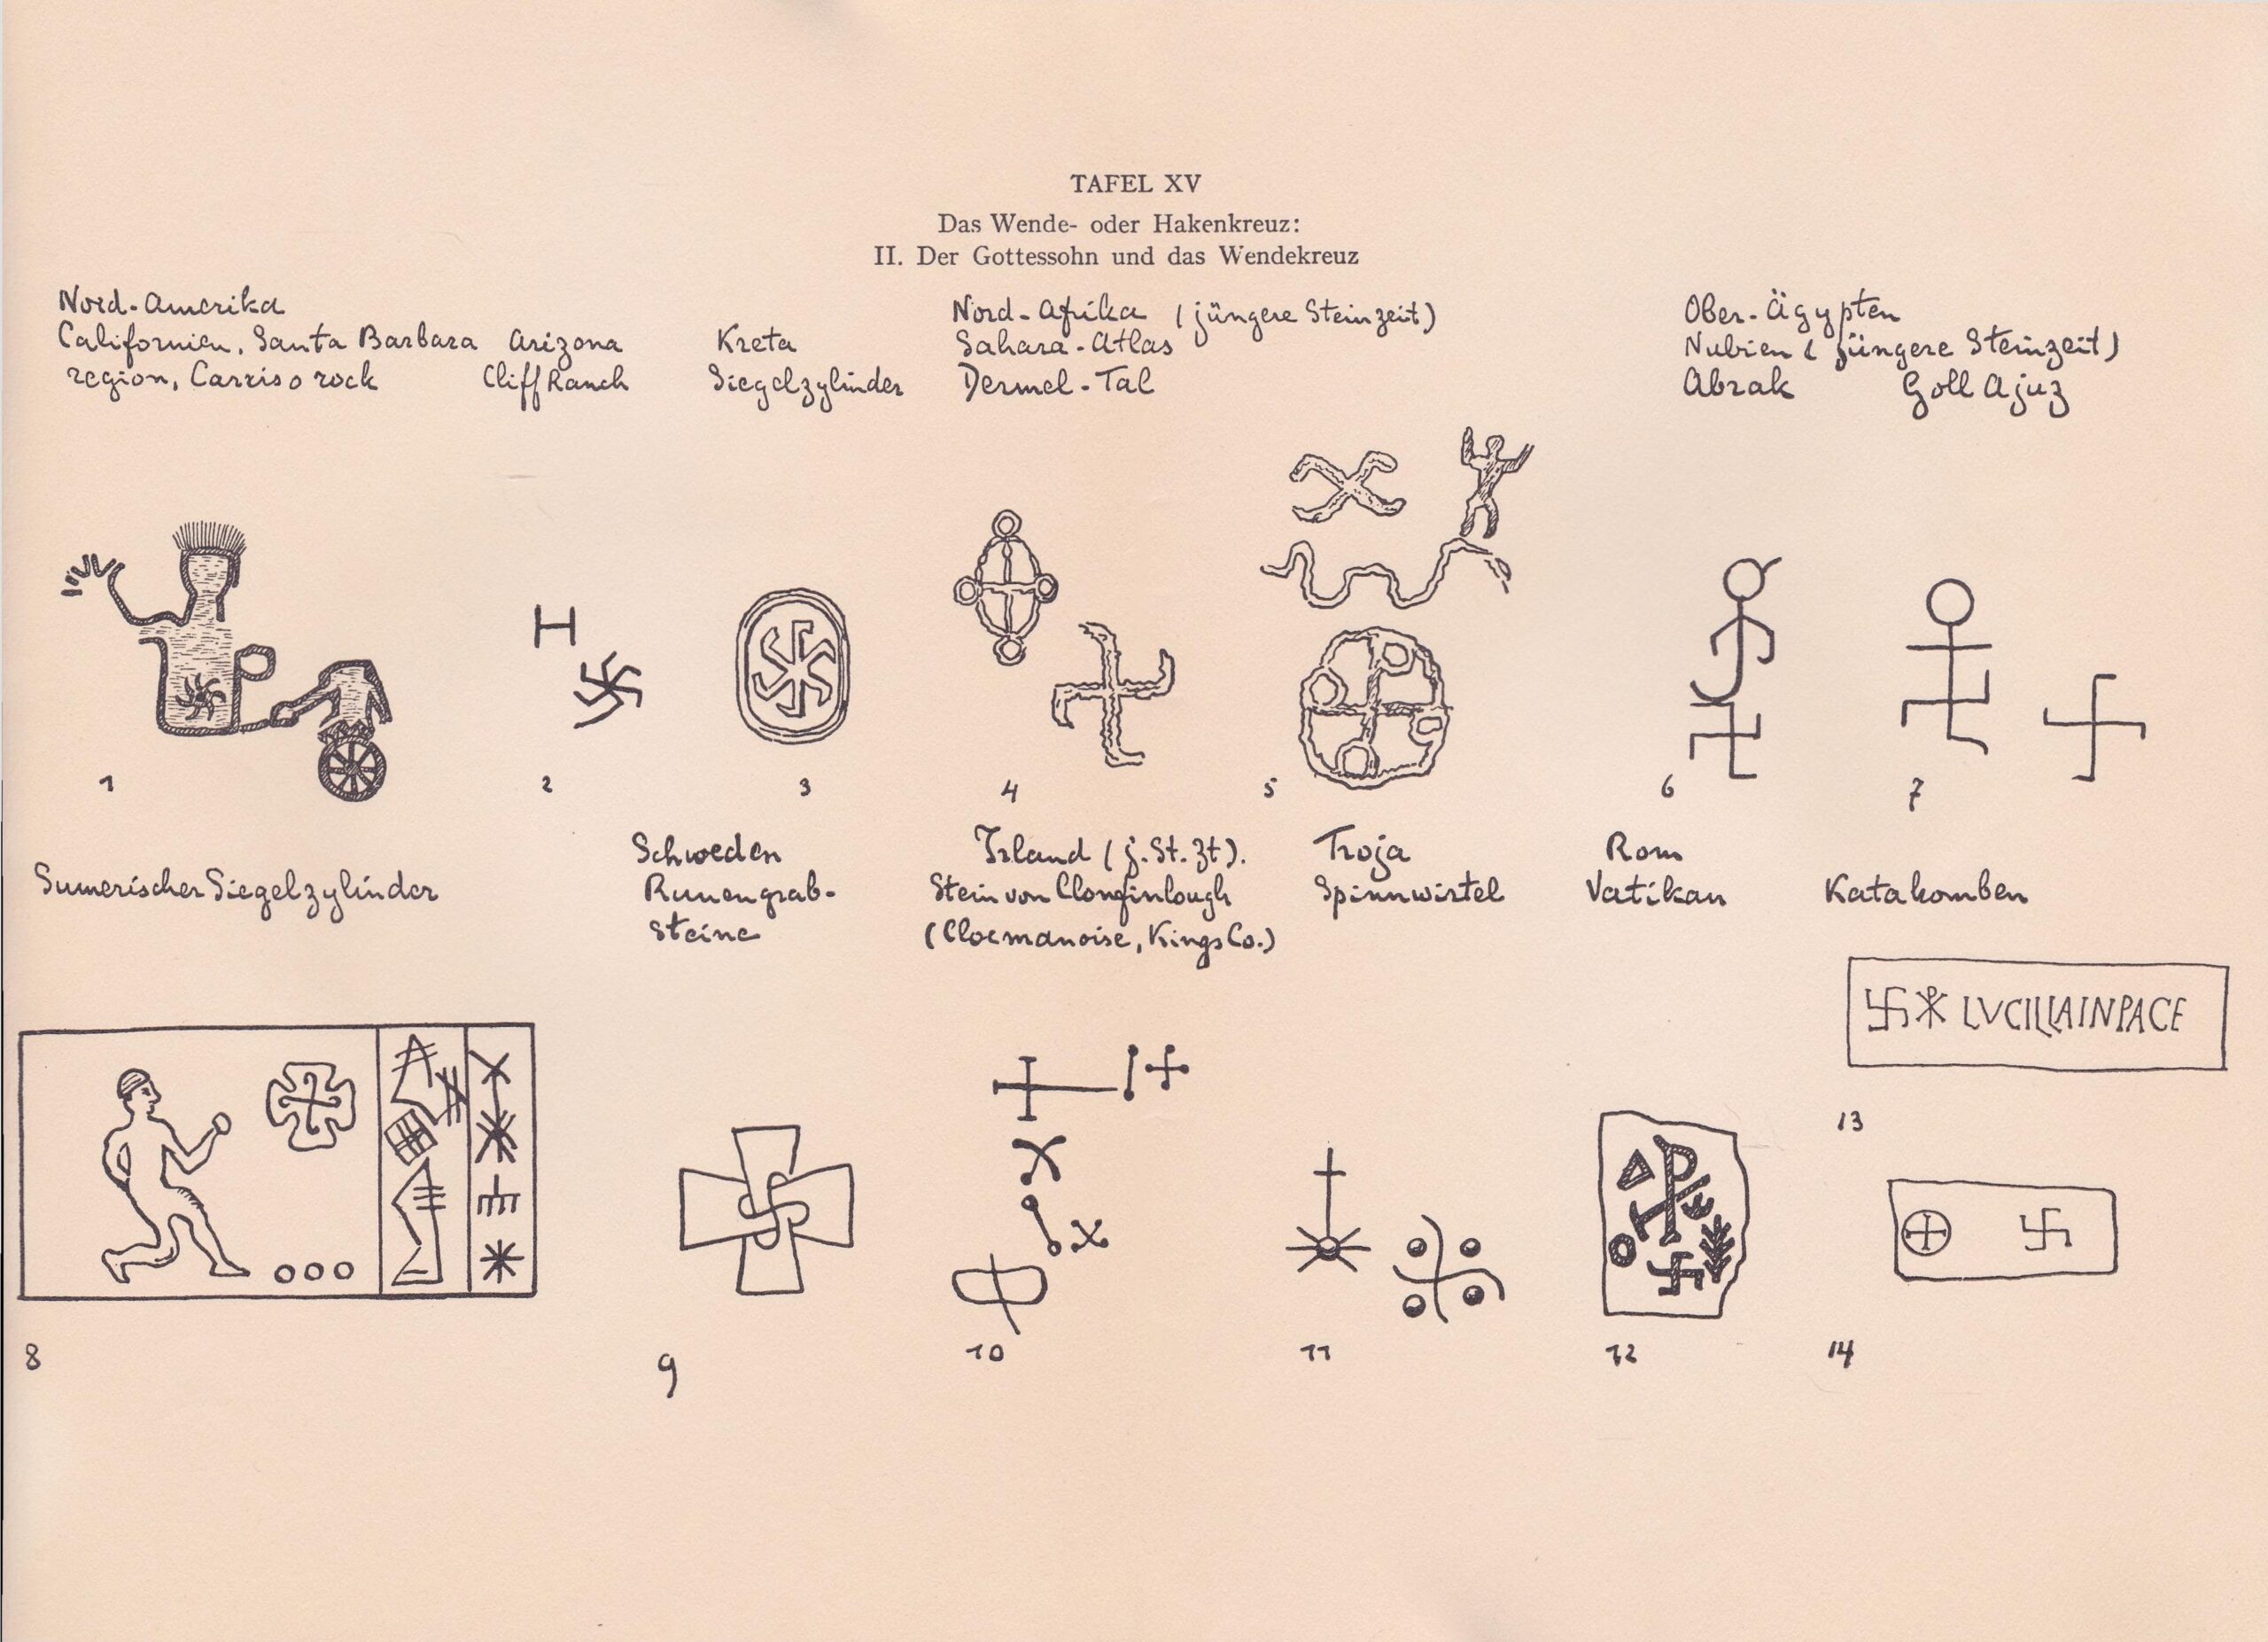 TAFEL XV
Das Wende- oder Hakenkreuz:
II. Der Gottessohn und das Wendekreuz
Nord-Amerika
Californien, Santa Barbara
region, Carriso rock
Arizona
Cliff Ranch
Kreta
Siegelzylinder
Nord-Afrika (jüngere Steinzeit)
Sahara-Atlas
Dermel-Tal
Ober-Ägypten
Nubien (jüngere Steinzeit)
Abrak Goll Ajuz
1 2 3 4 5 6 7
Sumerischer Siegelzylinder
Schweden
Runengrab-
steine
Irland (j. St. Zt).
Stein von Clonfinlough
(Cloemanoise, Kings Co.)
Troja
Spinnwirtel
Rom
Vatikan
Katakomben
LVCILLAINPACE
13
8 9 10 11 12 14